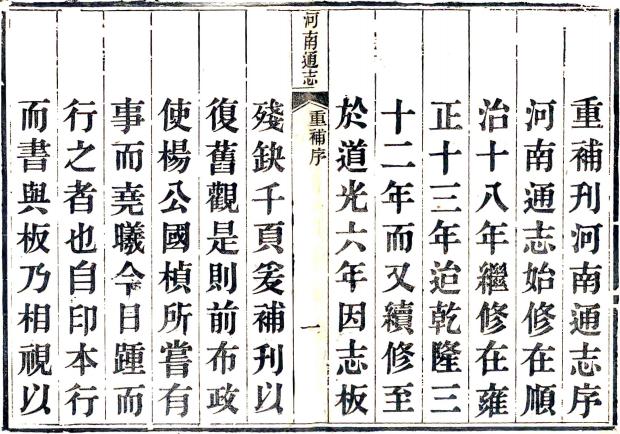 重補刊河南通志序
河南通志始修在順
治十八年繼修在雍
正十三年迨乾隆三
十二年而又續修至
於道光六年因志板
河南通志
重補序
一
殘缺千頁爰補刊以
復舊觀是則前布政
使楊公國楨所嘗有
事而堯曦今日踵而
行之者也自印本行
而書與板乃相視以